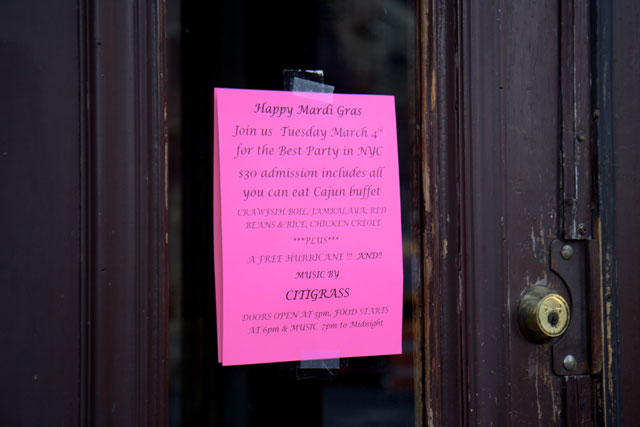 Happy Mardi Gras
Join us Tuesday March 4th
for the Best Party in NYC
$30 admission includes all
you can eat Cajun buffet
CRAWFSIH BOIL, JAMBALAYA, RED
BEANS & RICE, CHICKEN CREOLE
***PLUS***
A FREE HURRICANE !!! AND!!
MUSIC BY
CITIGRASS
DOORS OPEN AT 5pm, FOOD STARTS
AT 6pm & MUSIC 7pm to Midnight